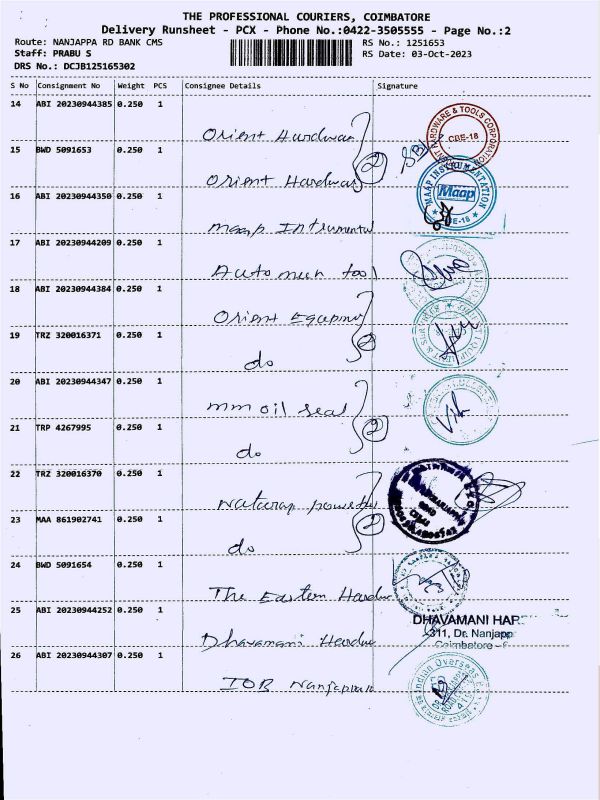 THE PROFESSIONAL COURIERS, COIMBATORE
Delivery Runsheet - PCX - Phone No.:0422-3505555 - Page No.:2
Route: NANJAPPA RD BANK CMS
RS No.: 1251653
Staff: PRABU S
RS Date: 03-Oct-2023
DRS No.: DCJB125165302
S No Consignment No Weight PCS Consignee Details Signature
14 ABI 20230944385 0.250 1
Orient Hardwar
HARDWARE & TOOLS CORPORATION
CBE-18
15 BWD 5091653 0.250 1
2
Orient Hardwar
MAAP INSTRUMENTATION
Maap
16 ABI 20230944350 0.250 1
E-18
Maap Intrumental
17 ABI 20230944209 0.250 1
Auto mech tool
18 ABI 20230944384 0.250 1
Orient Equpmen
19 TRZ 320016371 0.250 1
2
do
20 ABI 20230944347 0.250 1
mm oil seal
21 TRP 4267995 0.250 1
2
do
22 TRZ 320016370 0.250 1
Nataraj
23 MAA 861902741 0.250 1
2
do
24 BWD 5091654 0.250 1
The Eastern Hardw
25 ABI 20230944252 0.250 1
DHAVAMANI HAR
311, Dr. Nanjapp
Dhavamani Hardw
Coimbatore
26 ABI 20230944307 0.250 1
Indian Overseas
IOB Nanjappa